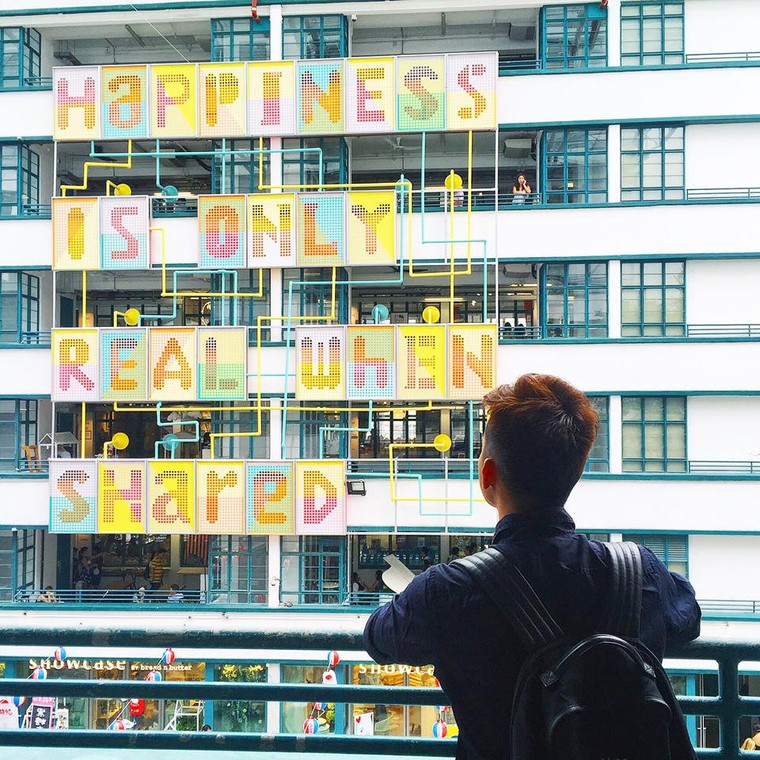 HaPPINESS
IS ONLY
REAL WhEN
SHareD
SHOWCase BY bread n butter
SHOWC